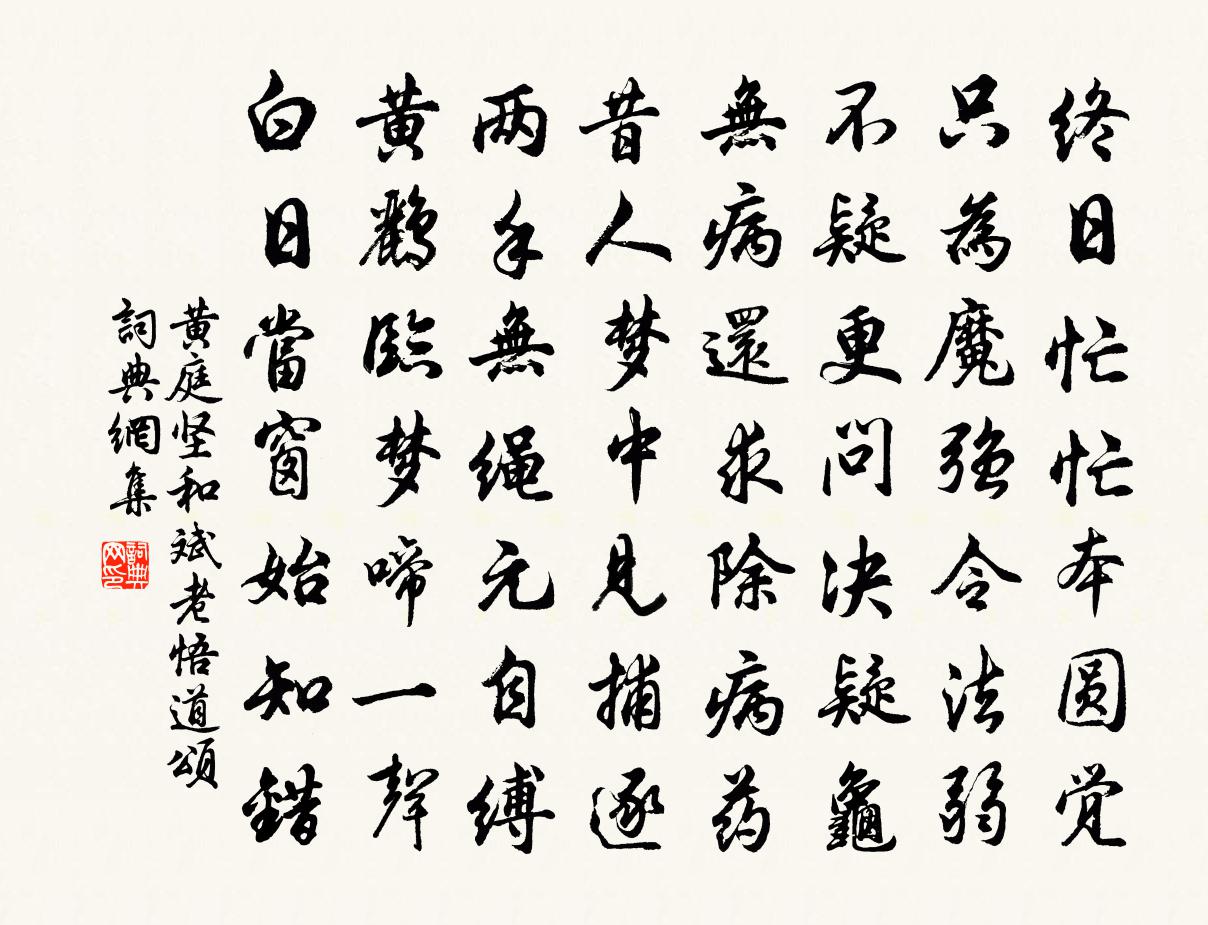 终日忙忙本圆觉
只為魔强令法弱
不疑更问决疑龜
無病還求除病药
昔人梦中见捕逐
两手無绳元自缚
黄鸝臨梦啼一聲
白日當窗始知錯
黄庭坚和斌老悟道頌
詞典網集
詞典网印